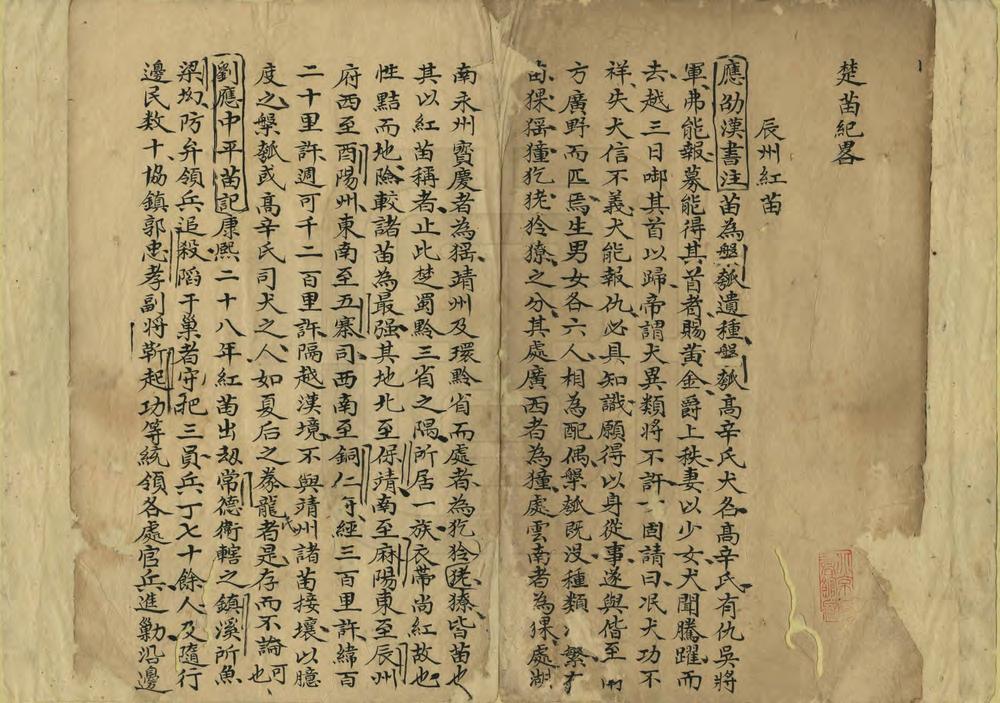 楚苗紀畧
辰州紅苗
應劭漢書注苗為槃瓠遺種槃瓠高辛氏犬名高辛氏有仇吳將
軍弗能報募能得其首者賜黃金爵上秩妻以少女犬聞騰躍而
去越三日啣其首以歸帝謂犬異類將不許女固請曰氓犬功不
祥失犬信不義犬能報仇必具知識願得以身從事遂與偕至南
方廣野而匹焉生男女各六人相為配偶槃瓠既没種類繁有
苗猓猺獞犵狫狑獠之分其處廣西者為獞處雲南者為猓處湖
南永州寶慶者為猺靖州及環黔省而處者為犵狑狫獠皆苗也
其以紅苗稱者止此楚蜀黔三省之隅所居一族衣帶尚紅故也
性黠而地險較諸苗為最强其地北至保靖南至麻陽東至辰州
府西至酉陽州東南至五寨司西南至銅仁府經三百里許緯百
二十里許週可千二百里許隔越漢境不與靖州諸苗接壤以臆
度之槃瓠或高辛氏司犬之人如夏后之豢龍者氏是存而不論可也
劉應中平苗記康熙二十八年紅苗出刼常德衛轄之鎮溪所魚
梁坳防弁領兵追殺蹈于巢者守把三員兵丁七十餘人及隨行
邊民数十協鎮郭忠孝副將靳起功等統領各處官兵進勦沿邊